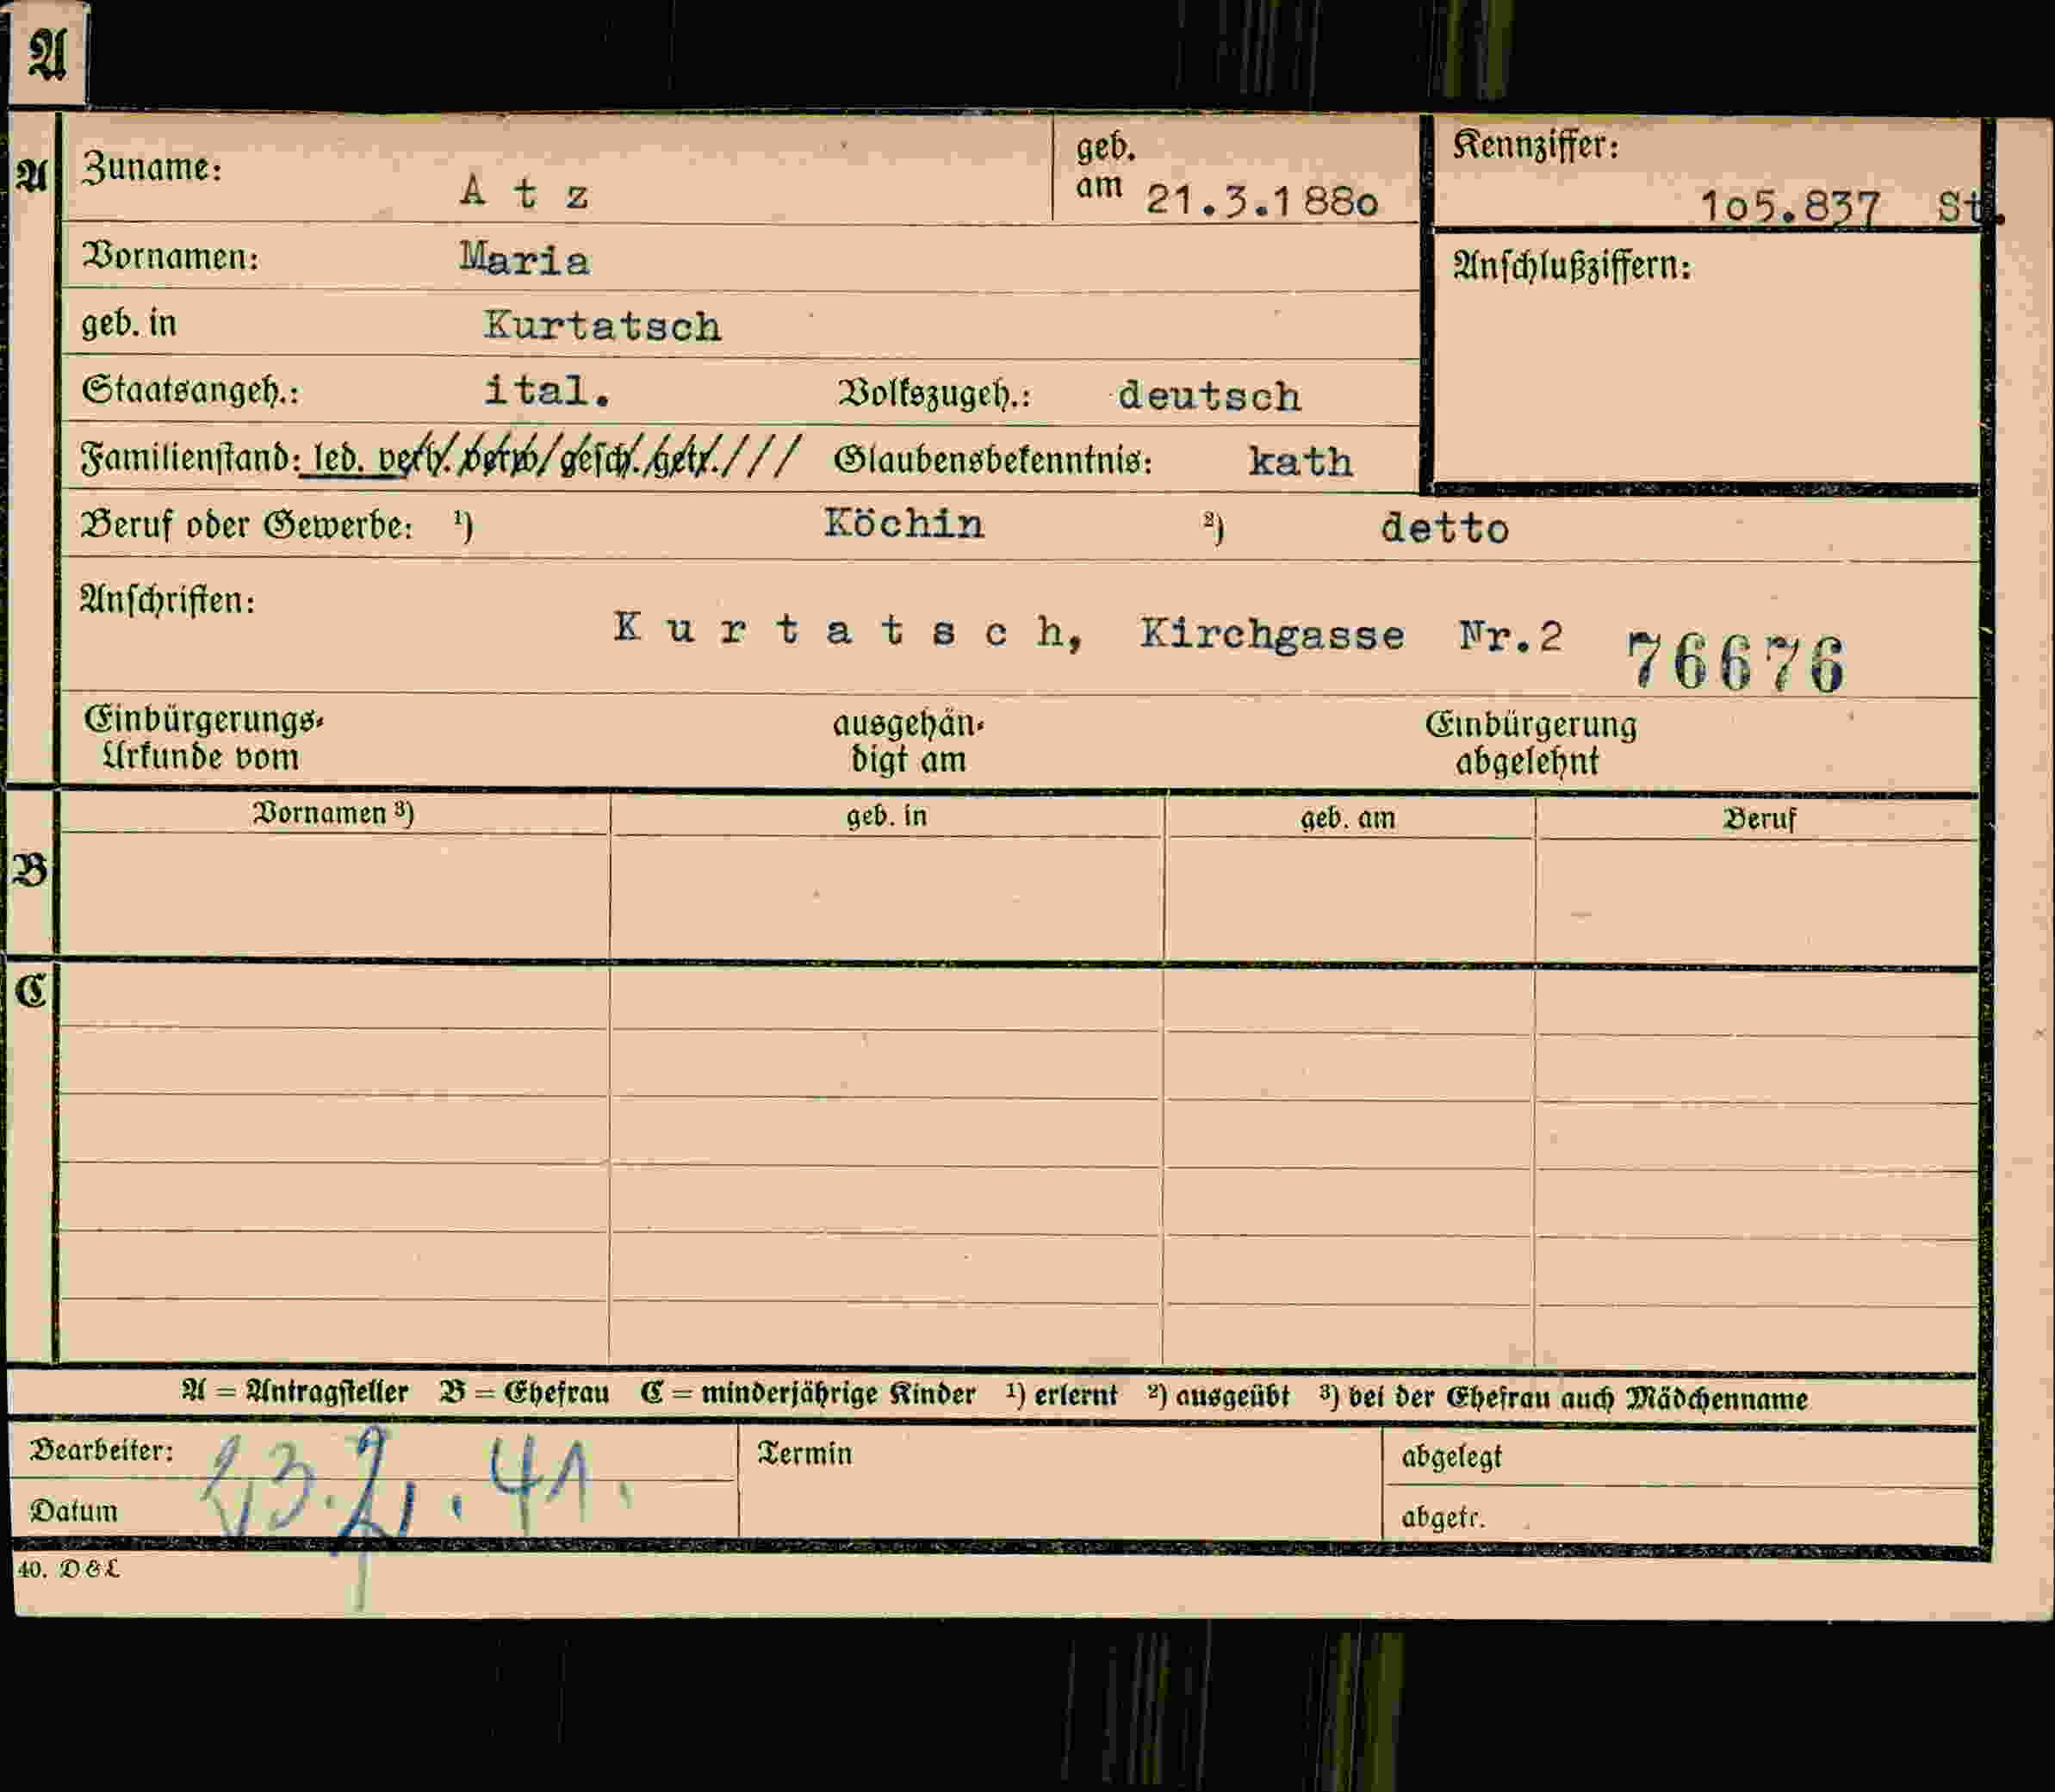 A
A
Zuname: A t z geb. am 21.3.188o
Kennziffer: 1o5.837 St.
Vornamen: Maria
Anschlußziffern:
geb. in Kurtatsch
Staatsangeh.: ital. Volkszugeh.: deutsch
Familienstand: led. verh. verw. gesch. getr./// Glaubensbekenntnis: kath
Beruf oder Gewerbe: ¹) Köchin ²) detto
Anschriften: K u r t a t s c h, Kirchgasse Nr.2 76676
Einbürgerungs-Urkunde vom ausgehändigt am Einbürgerung abgelehnt
B
Vornamen ³) geb. in geb. am Beruf
C
A = Antragsteller B = Ehefrau C = minderjährige Kinder ¹) erlernt ²) ausgeübt ³) bei der Ehefrau auch Mädchenname
Bearbeiter: Termin abgelegt
Datum 23.2.41. abgetr.
40. D & L